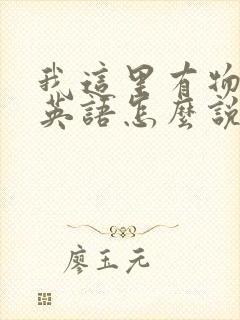 我這里有物
英語怎麼說
廖玉元